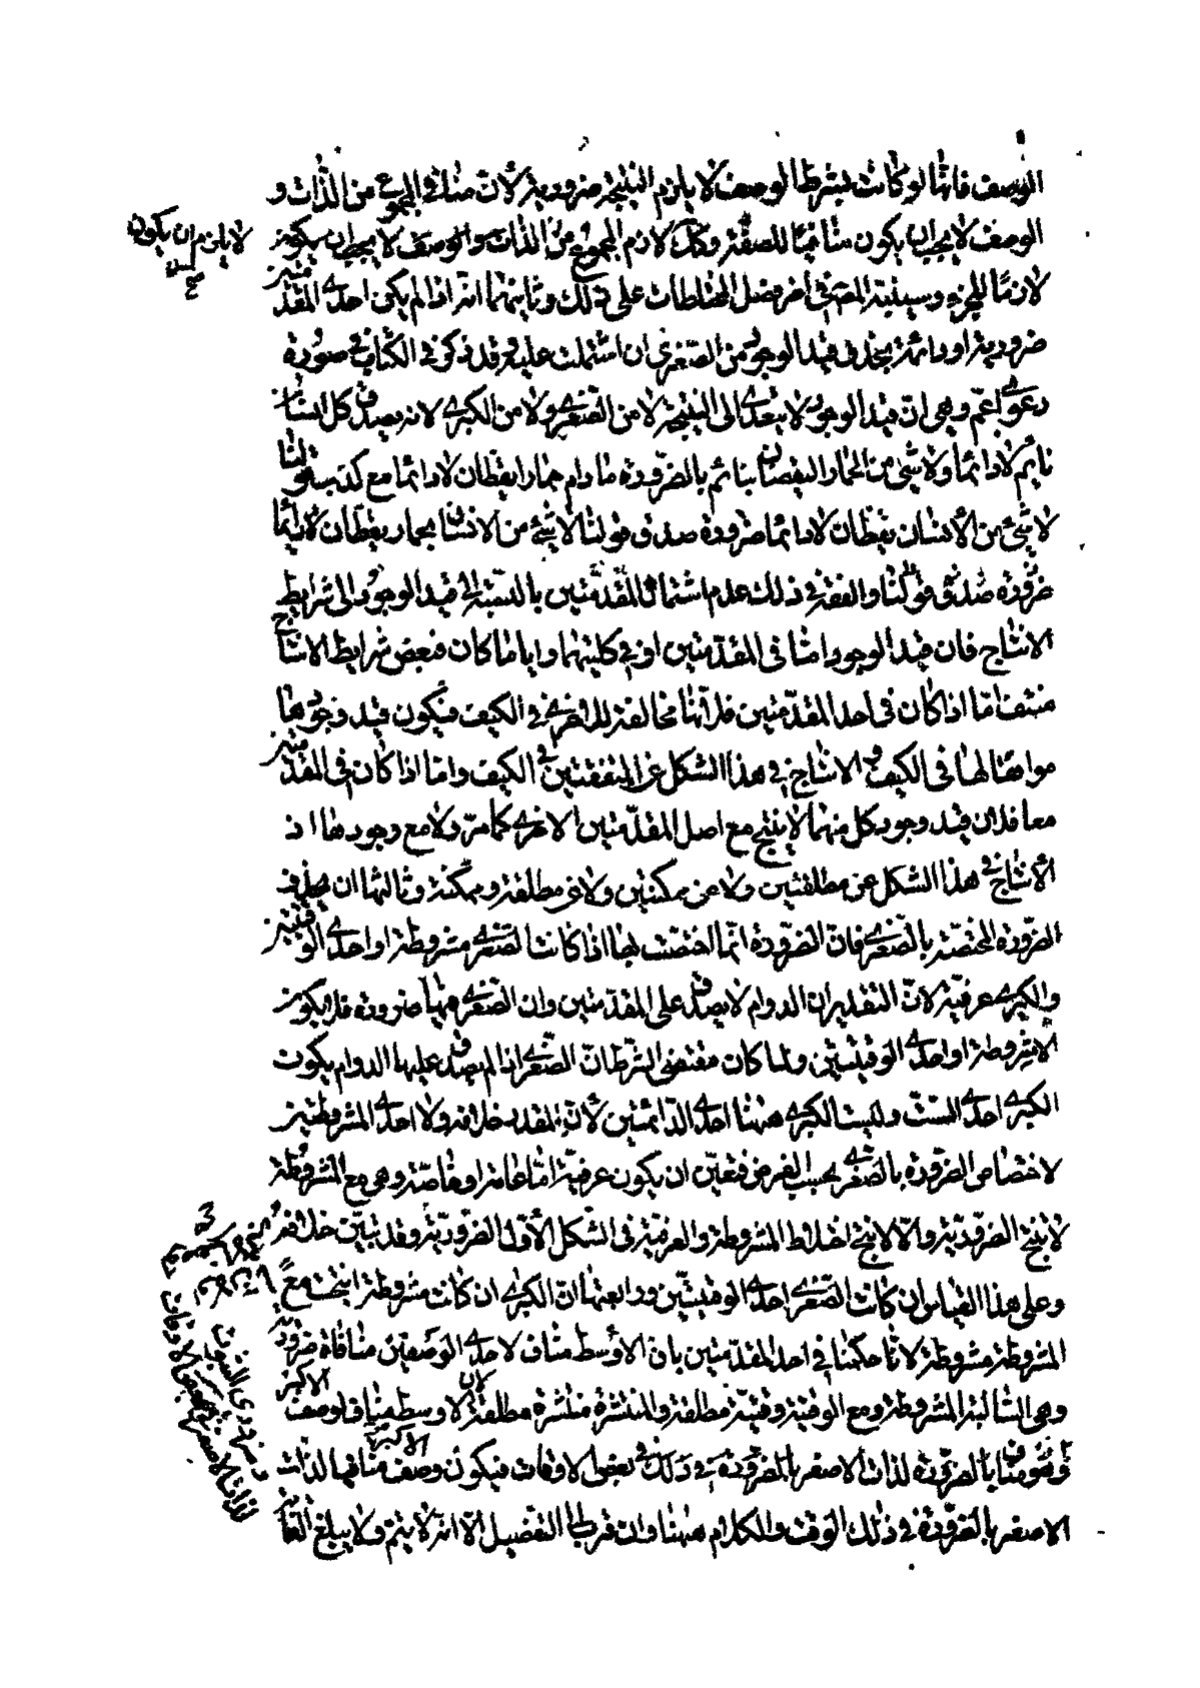 الوصف فانها لو كانت بشرط الوصف لا يلزم النتيجة ضرورية لان منافي المجموع من الذات و
الوصف لا يجب ان يكون منافيا للصفة وكل لازم المجموع من الذات والوصف لا يجب ان يكون
لا يلزم ان يكون
لازما للجزء وسينبه المص في اخر فصل المختلطات على ذلك وثانيهما انه اذا لم يكن احدى المقدمتين
ضرورية او دائمة يحذف قيد الوجود من الصغرى ان اشتملت عليه وقد ذكر في الكتاب في صورة
دعوى اعم وهي ان قيد الوجود لا يتعدى الى النتيجة لا من الصغرى ولا من الكبرى لانه يصدق كل انسان
نائم لا دائما ولا شيء من الحمار اليقظان بنائم بالضرورة ما دام حمارا يقظان لا دائما مع كذب قولنا
لا شيء من الانسان يقظان لا دائما ضرورة صدق قولنا لا شيء من الانسان بحمار يقظان لا دائما
ضرورة صدق قولنا والفقه في ذلك عدم اشتمال المقدمتين بالنسبة الى قيد الوجود على شرايط
الانتاج فان قيد الوجود اما في المقدمتين او في كليتهما واياما كان فبعض شرايط الانتاج
منتف اما اذا كان في احد المقدمتين فلانها مخالفة للاخرى في الكيف فيكون قيد وجودها
موافقا لها في الكيف ولا انتاج في هذا الشكل عن المتفقتين في الكيف واما اذا كان في المقدمتين
معا فلان قيد وجود كل منهما لا ينتج مع اصل المقدمتين الاخرى كما مر ولا مع وجودها اذ
لا انتاج في هذا الشكل عن مطلقتين ولا عن ممكنتين ولا عن مطلقة وممكنة وثالثها ان يحذف
الضرورة المختصة بالصغرى فان الضرورة انما اختصت بها اذا كانت الصغرى مشروطة او احدى الوقتيتين
والكبرى عرفية لان التقدير ان الدوام لا يصدق على المقدمتين وان الصغرى فيها ضرورة فلا يكون
الا مشروطة او احدى الوقتيتين ولما كان مقتضى الشرط ان الصغرى اذا لم يصدق عليها الدوام يكون
الكبرى احدى الست وليست الكبرى ههنا احدى الدائمتين لان المقدر خلافه ولا احدى المشروطتين
لاختصاص الضرورة بالصغرى بحسب الفرض فتعين ان يكون عرفية اما عامة او خاصة وهي مع المشروطة
لا ينتج الضرورية والا لانتج اختلاط المشروطة والعرفية في الشكل الاول الضرورية وقد تبين خلافه
وعلى هذا القياس ان كانت الصغرى احدى الوقتيتين ورابعتها ان الكبرى ان كانت مشروطة انتجت مع
المشروطة مشروطة لانا حكمنا في احد المقدمتين بان الاوسط مناف لاحدى الوصفين منافاة ضرورية
وهي السالبة المشروطة ومع الوقتية وقتية مطلقة والمنتشرة منتشرة مطلقة لان الاوسط مناف لوصف الاكبر
بالضرورة لذات الاصغر بالضرورة في ذلك في بعض الاوقات فيكون وصف الاكبر منافيا لذات
الاصغر بالضرورة في ذلك الوقت والكلام ههنا وان فرط التفصيل الا انه لا يتم ولا يبلغ